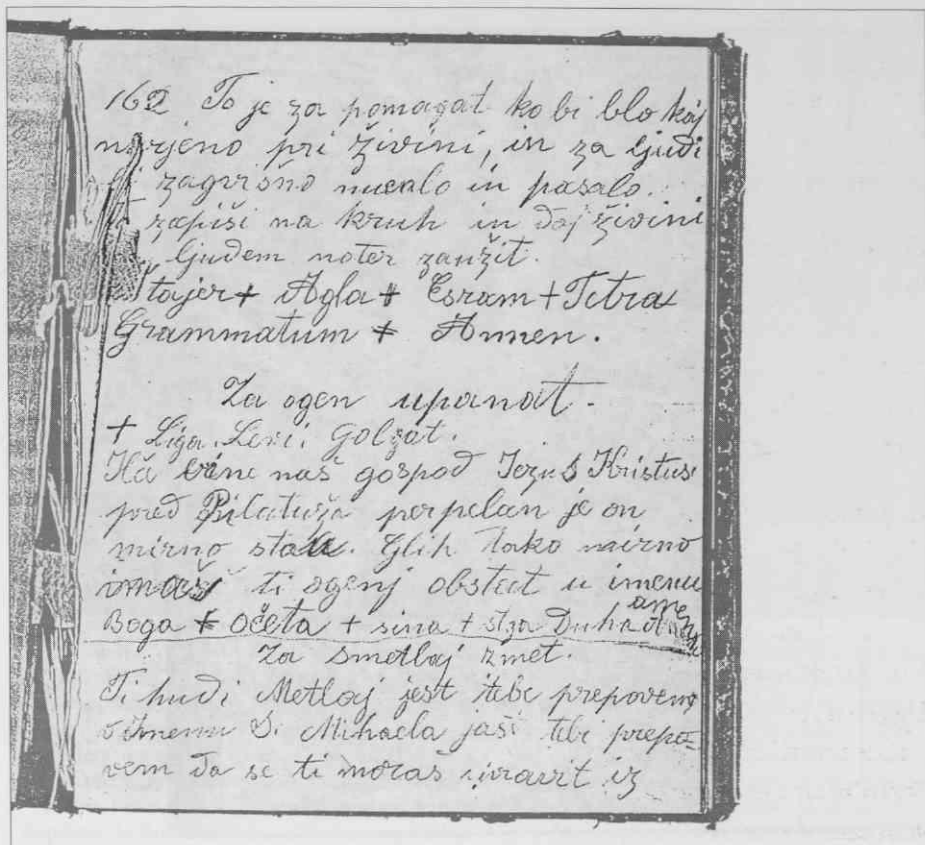 162 To je za pomagat ko bi blo kaj
narjeno pri živini, in za ljudi
zagvršno nucalo in pasalo.
zapiši na kruh in daj živini
ljudem noter zaužit.
+ Agla + Esram + Tetra
Grammatum + Ammen.
Za ogen upanat.
+ Liga. Levi. Golgat.
naš gospod Jezus Kristus
pred Pilatuža perpelan je on
mirno stau. Glih tako mirno
imaš ti ogenj obstat u imenu
Boga + očeta + sina + Duha amen
Za smetlaj zmet.
Ti hudi Metlaj jest tebe prepovem
v Imenu S. Mihaela jaši tebi prepo=
vem da se ti moraš iz